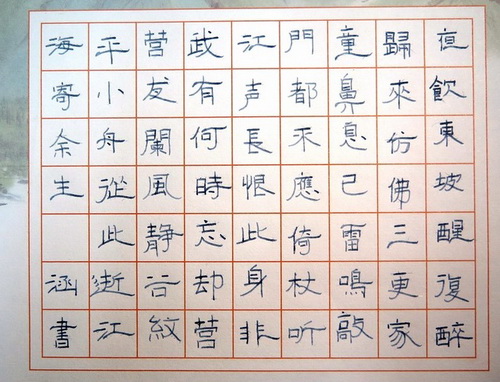 夜飲東坡醒復醉
歸來仿佛三更家
童鼻息已雷鳴敲
門都不應倚杖听
江声長恨此身非
我有何時忘却营
营夜闌風静谷紋
平小舟從此逝江
海寄余生 涵書